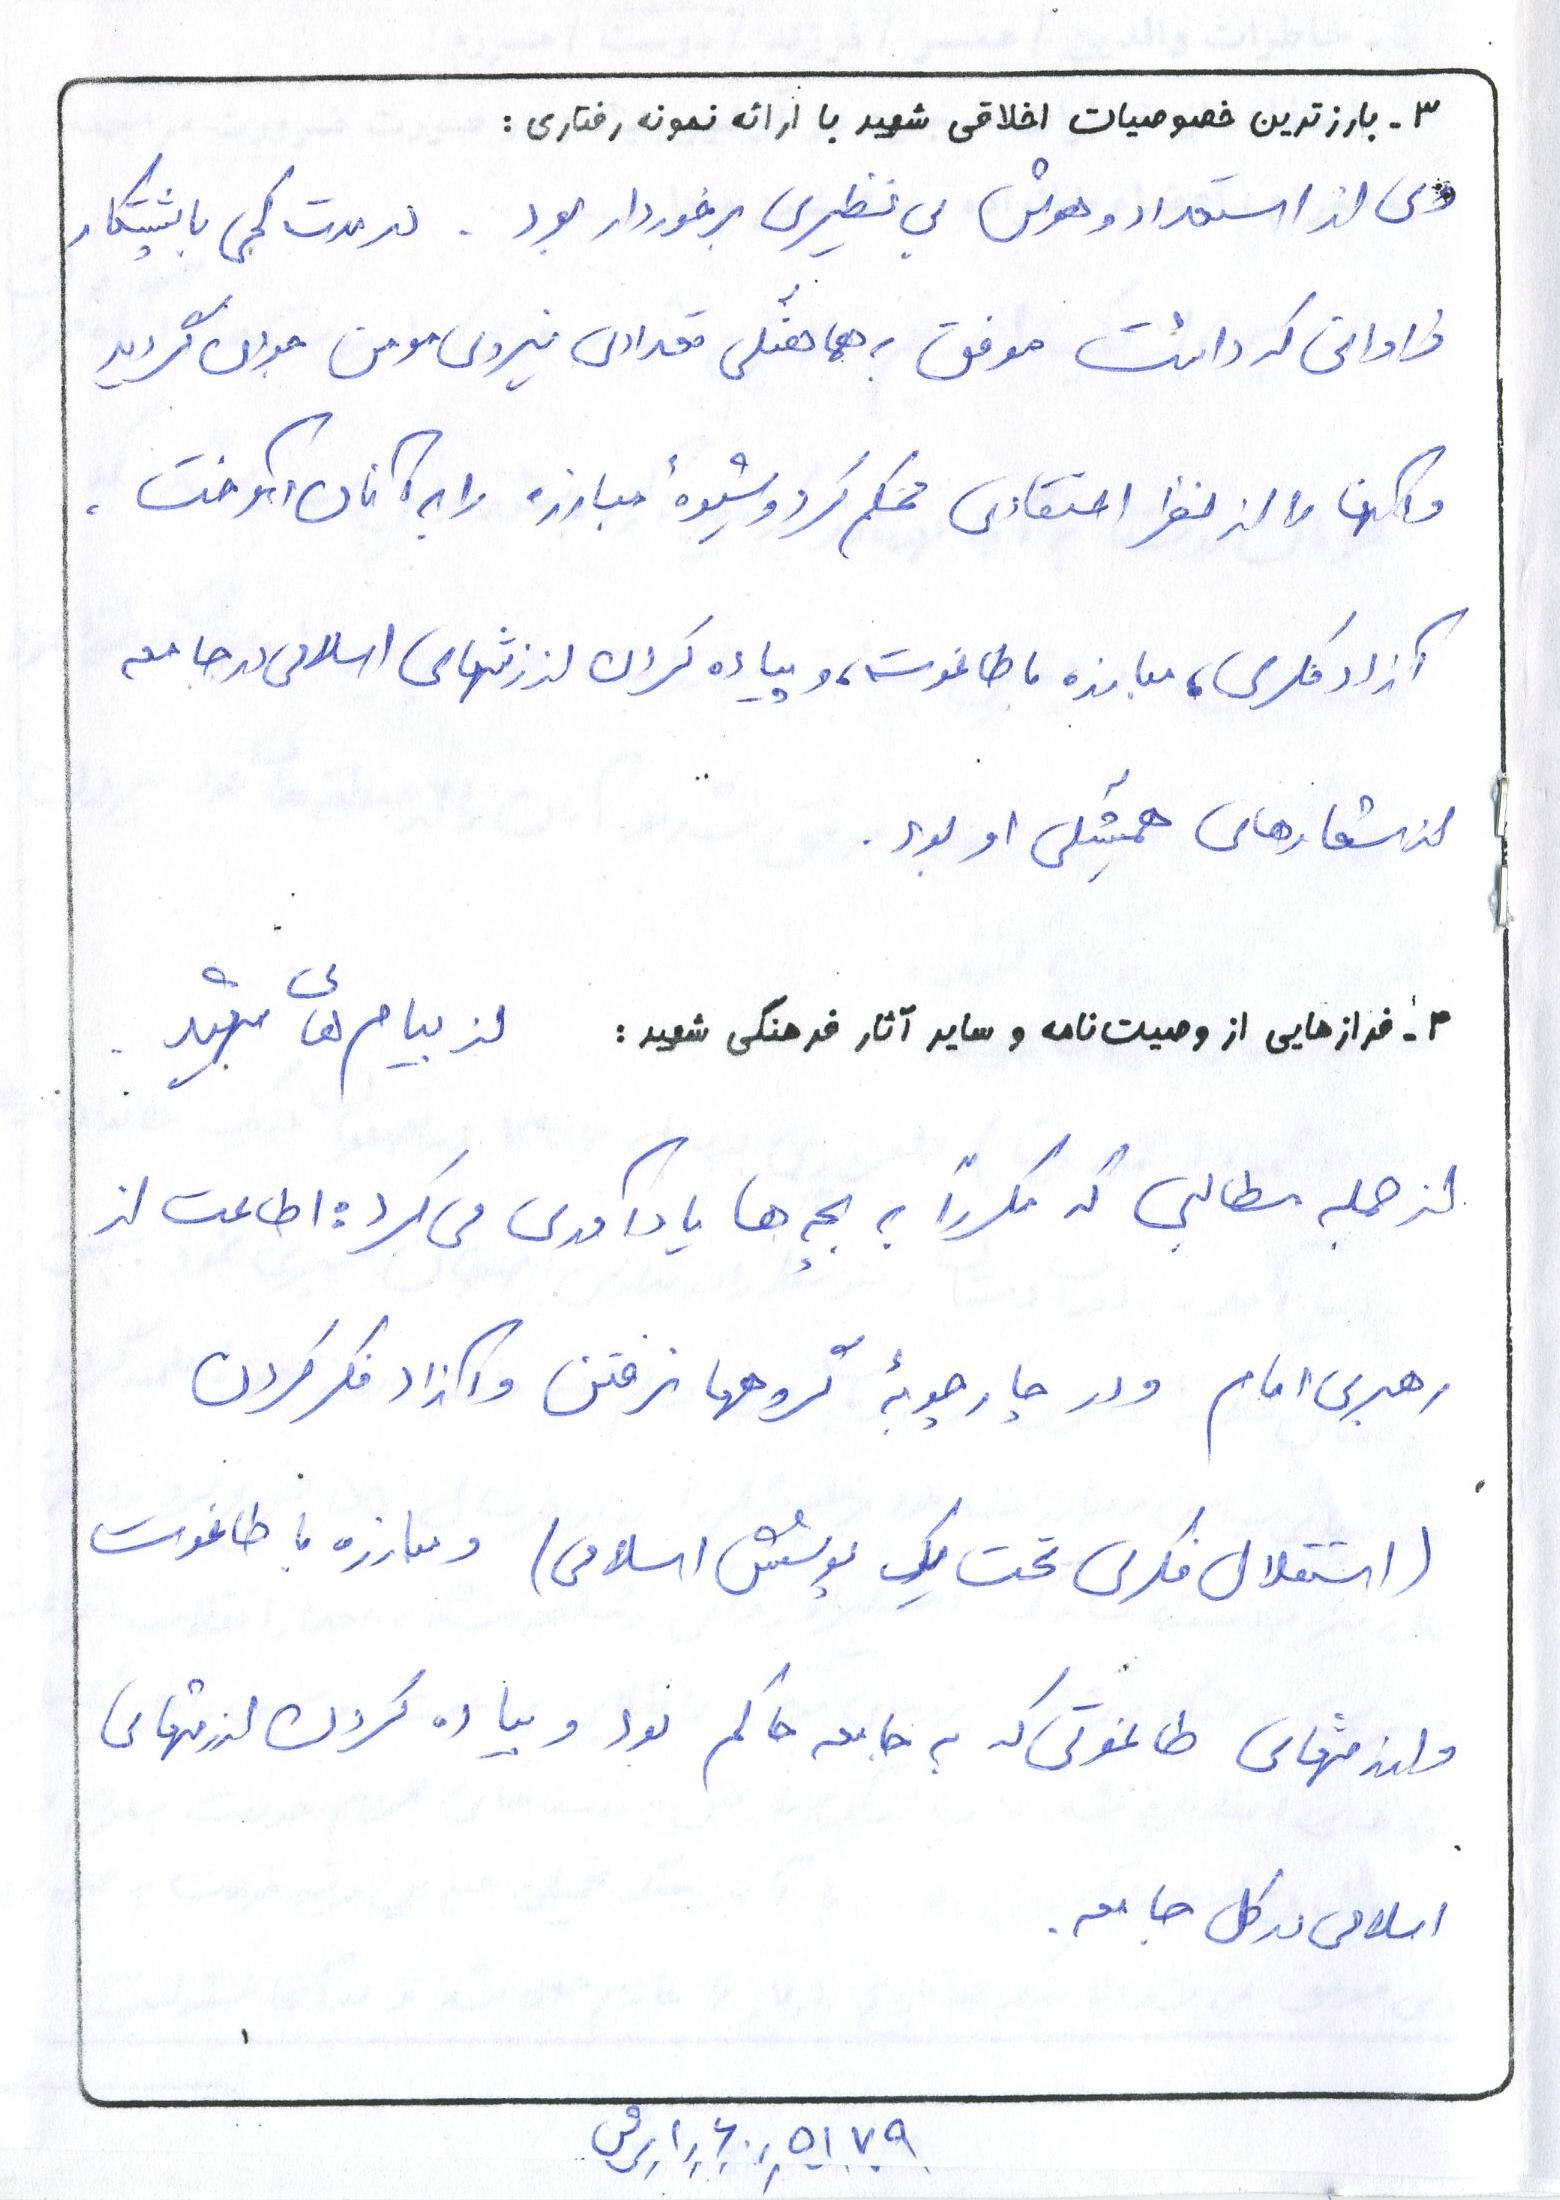 ۳ـ بارزترین خصوصیات اخلاقی شهید با ارائه نمونه رفتاری :
وی از استعداد و هوش بی نظیری برخوردار بود . در مدت کمی با پشتکار
فراوانی که داشت موفق به هماهنگی تعدادی نیروی مومن جوان گردید
و آنها را از نظر اعتقادی محکم کرد و شیوهٔ مبارزه را به آنان آموخت .
آزاد فکری، مبارزه با طاغوت، و پیاده کردن ارزشهای اسلامی در جامعه
از شعارهای همیشگی او بود .
۴ـ فرازهایی از وصیت‌نامه و سایر آثار فرهنگی شهید : از پیام های شهید .
از جمله مطالبی که مکرراً به بچه ها یادآوری می کرد : اطاعت از
رهبری امام و در چارچوبهٔ گروهها نرفتن و آزاد فکر کردن
( استقلال فکری تحت یک پوشش اسلامی ) و مبارزه با طاغوت
و ارزشهای طاغوتی که به جامعه حاکم بود و پیاده کردن ارزشهای
اسلامی در کل جامعه .
۵۱۷۹